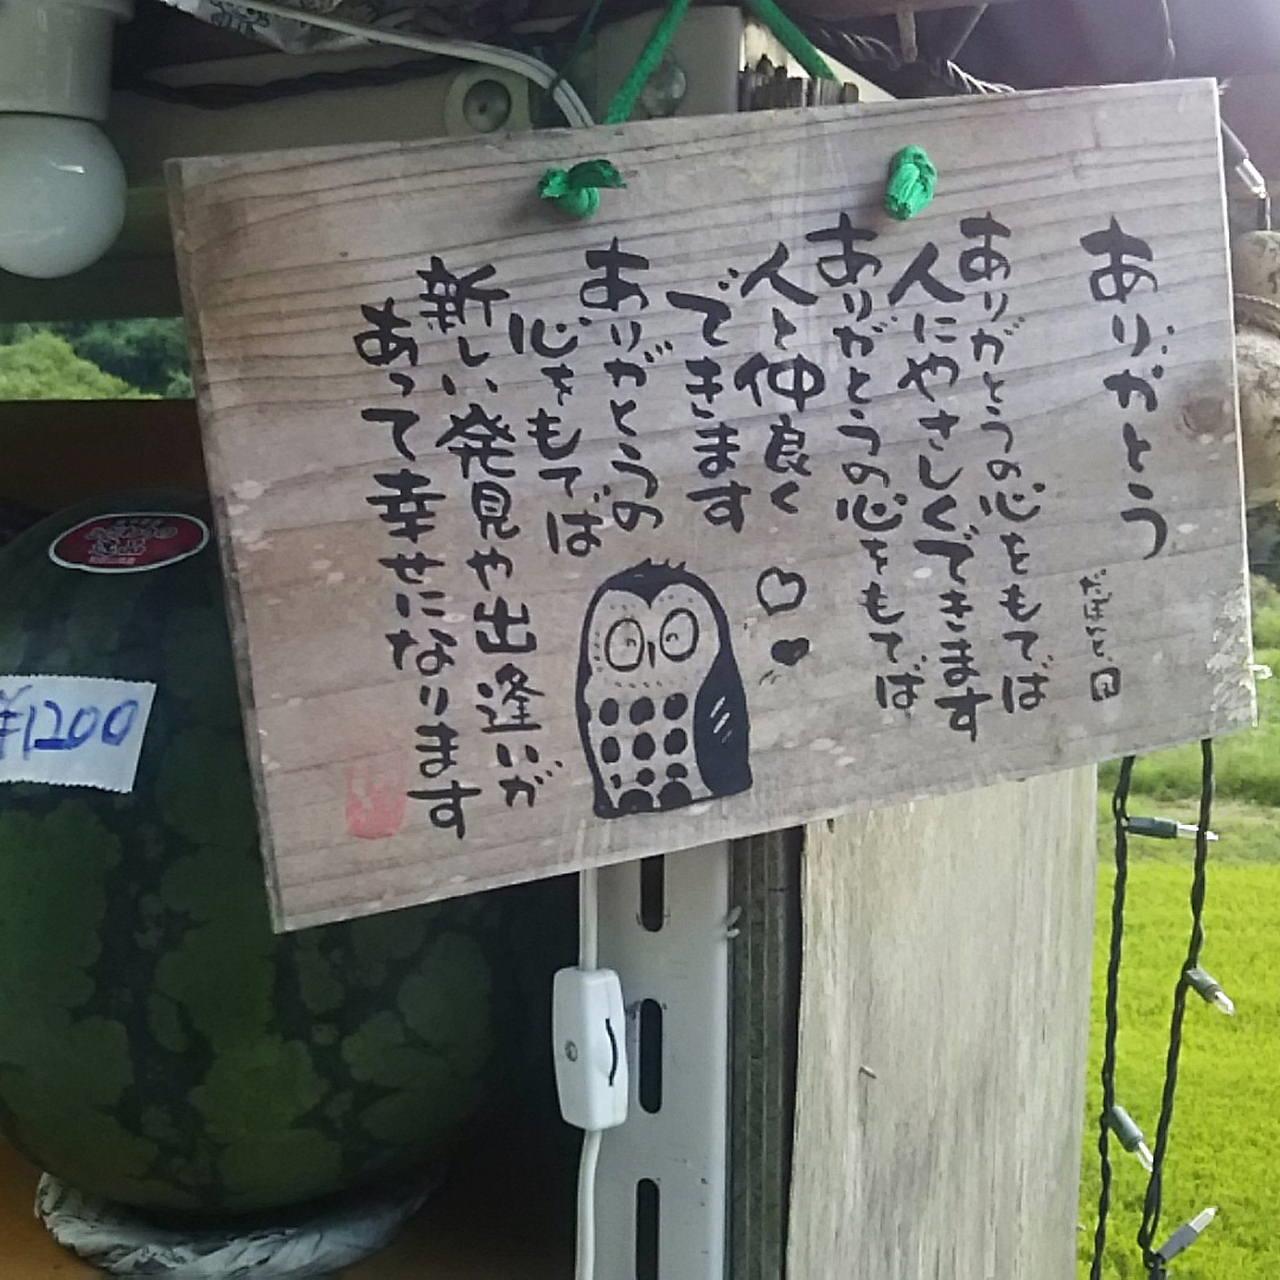 ありがとう
ありがとうの心をもてば
人にやさしくできます
ありがとうの心をもてば
人と仲良く
できます
ありがとうの
心をもてば
新しい発見や出逢いが
あって幸せになります
¥1200